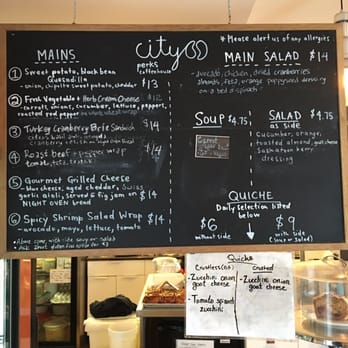 * Please alert us of any allergies
MAINS
city
perks
coffeehouse
① Sweet potato, black bean
Quesadilla
- onion, chipotle sweet potato, cheddar
$13
② Fresh Vegetable + Herb Cream Cheese
- carrots, onions, cucumber, lettuce, peppers,
roasted red pepper
$12
③ Turkey Cranberry Brie Sandwich
$14
④ Roast beef + pepper wrap
tomato
$14
⑤ Gourmet Grilled Cheese
- blue cheese, aged cheddar, Swiss
garlic aioli, served w/ fig jam on $14
NIGHT OVEN bread
⑥ Spicy Shrimp Salad Wrap $14
- avocado, mayo, lettuce, tomato
* Above come with side soup or salad
MAIN SALAD $14
- avocado, chicken, dried cranberries
almonds, feta, orange poppyseed dressing
on a bed of spinach
SOUP $4.75,
SALAD $4.75
as side
cucumber, orange,
toasted almond, goat cheese
Saskatoon berry
dressing
QUICHE
Daily selection listed
below
$6
without side
$9
with side
(Soup or Salad)
Quiche
Crustless (GF)
- Zucchini onion
goat cheese
- Tomato spinach
zucchini
Crusted
- Zucchini onion
goat cheese